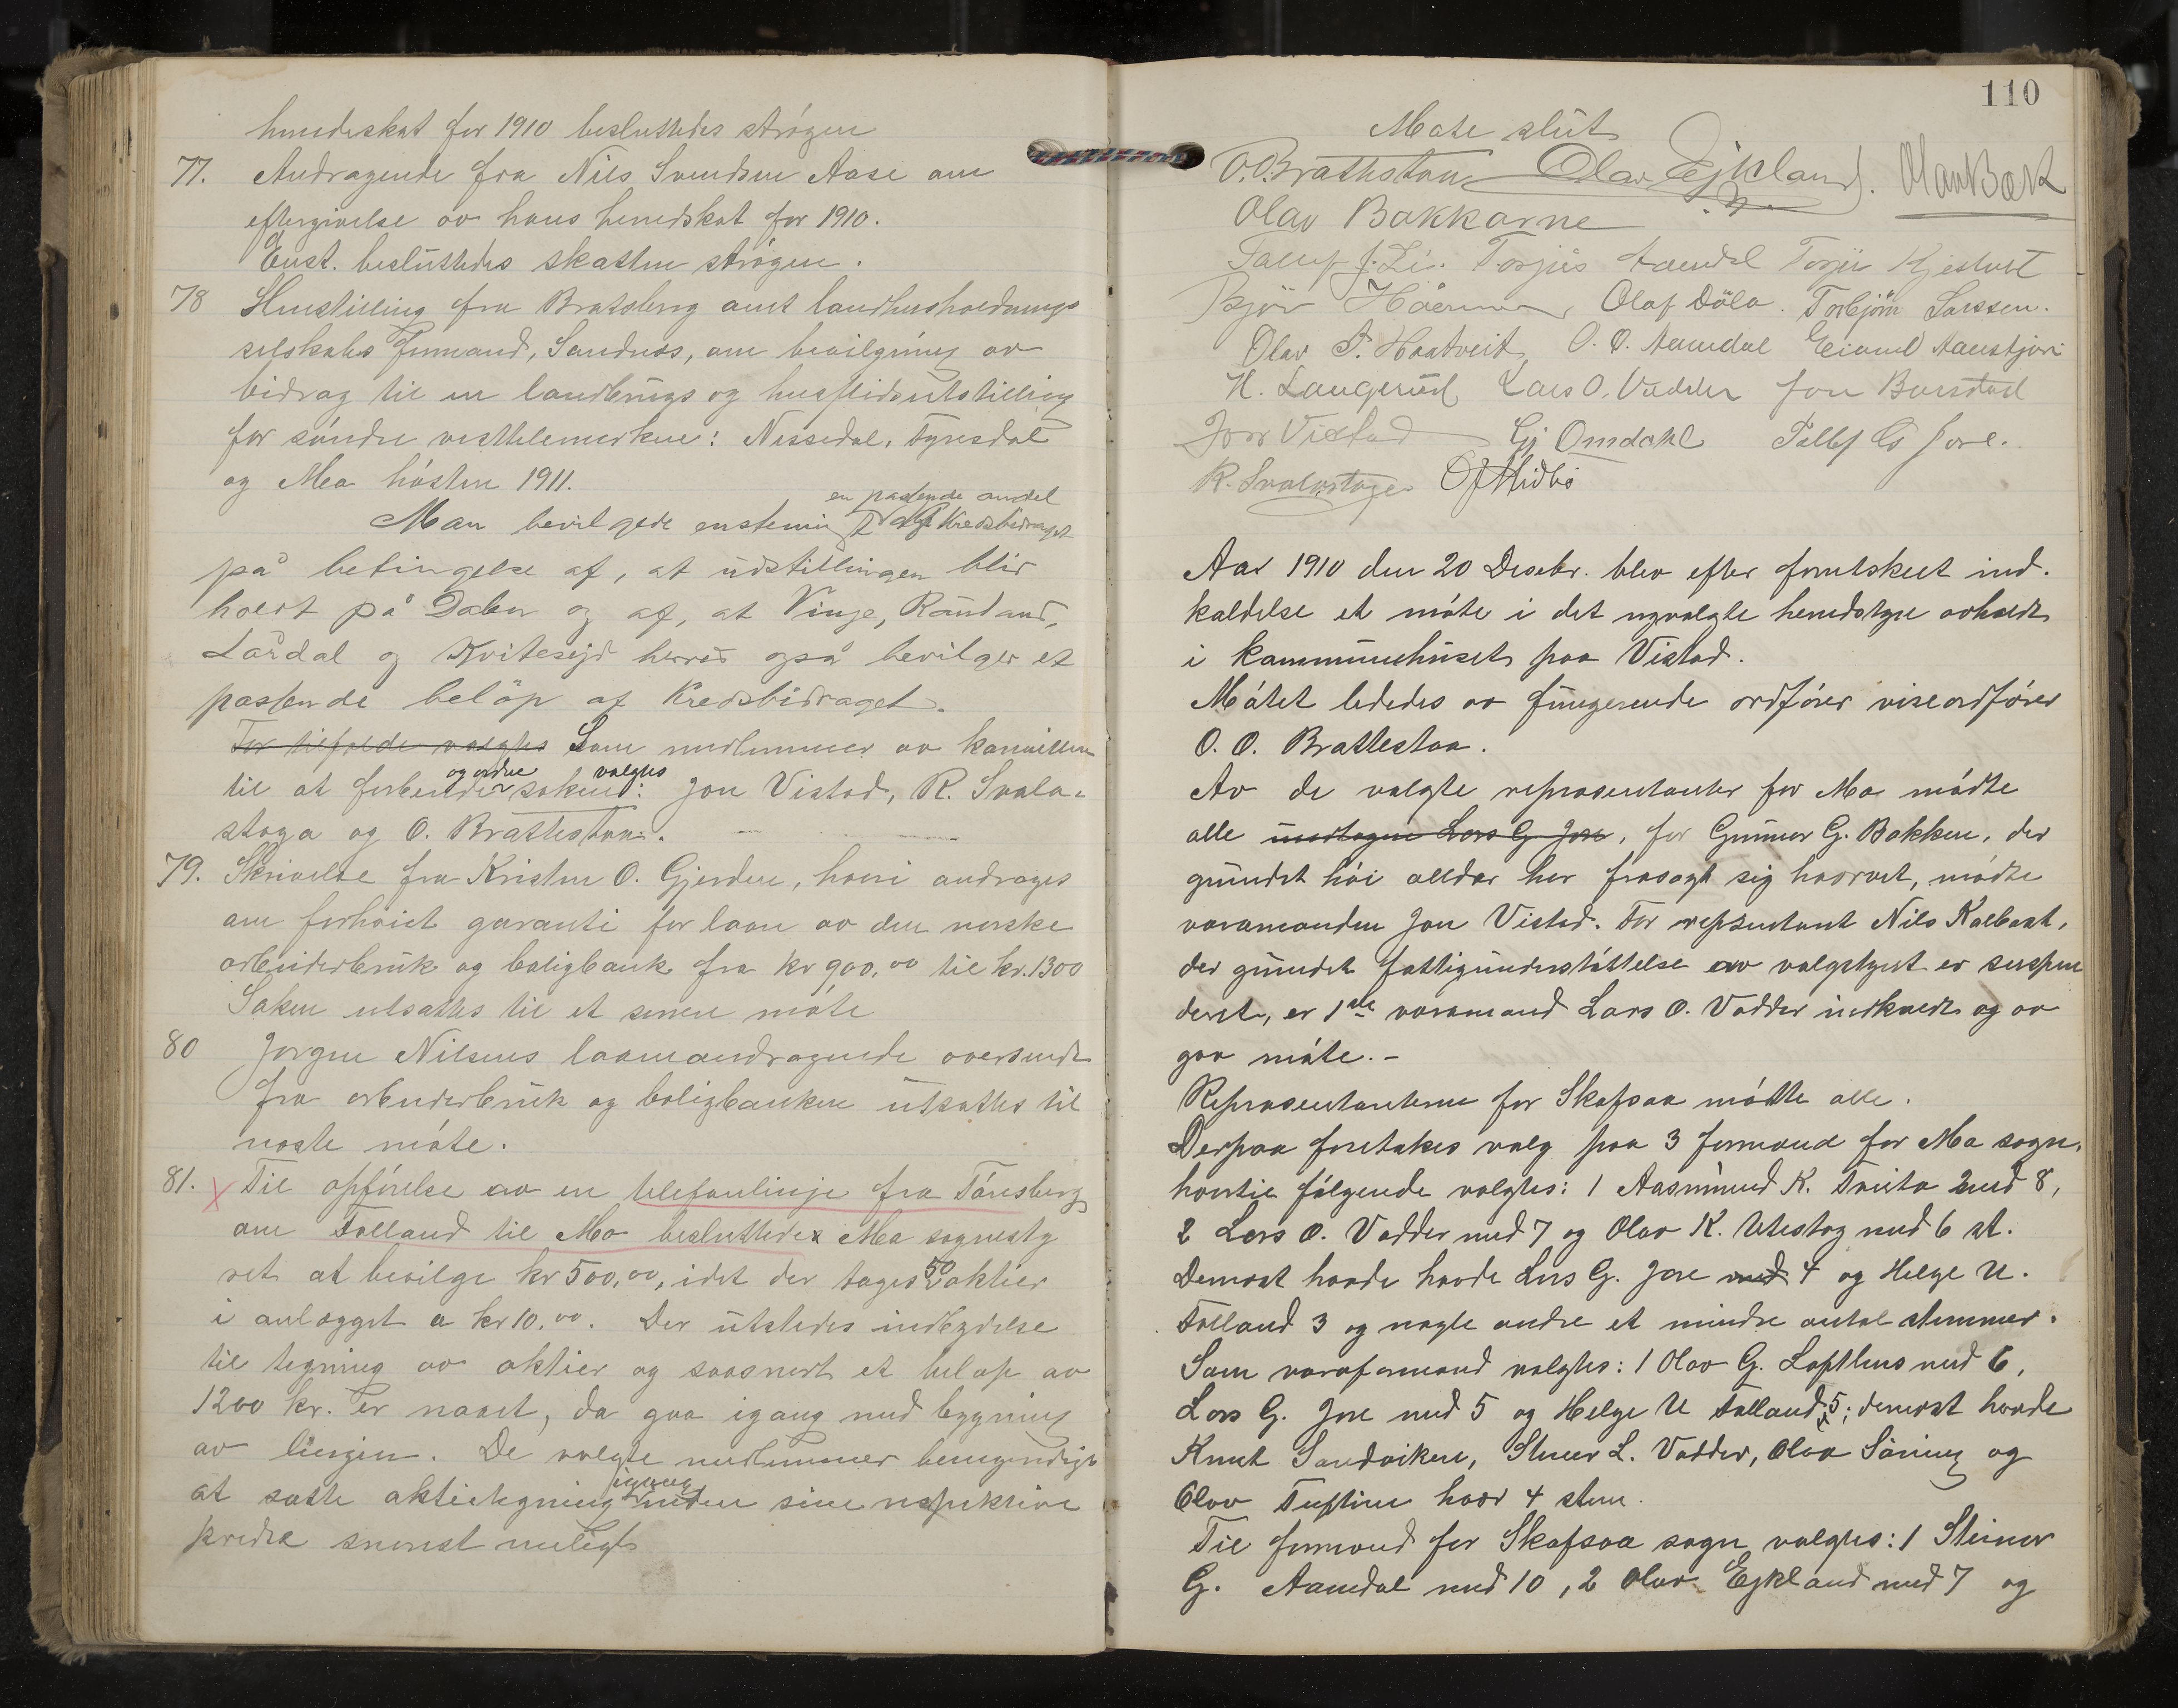 heredsskat for 1910 besluttedes strøgen
77. Andragende fra Nils Svendsen Aase om
eftergivelse av hans heredskat for 1910.
Enst. besluttedes skatten strøgen.
78 Henstilling fra Bratsberg amt landhusholdnings
selskabs formand, Sandnes, om bevilgning av
bidrag til en landbrugs og husflidsutstilling
for søndre vesttelemarken: Nissedal, Fyresdal
og Mo høsten 1911.
en passende andel
Man bevilgede enstemig af Kredsbidraget
på betingelse af, at udstillingen blir
holdt på Dalen og af, at Vinje, Rauland,
Lårdal og Kviteseid herred også bevilger et
passende beløp af Kredsbidraget.
For tilfælde valgtes Som medlemmer av komiteen
og ordne valgtes
til at forberede saken: Jon Vistad, R. Svala-
stoga og O. Brattestaa.
79. Skrivelse fra Kristen O. Gjerden, hvori andrages
om forhøiet garanti for laan av den norske
arbeiderbruk og boligbank fra kr 900,00 til kr. 1300
Saken utsattes til et senere møte
80 Jørgen Nilsens laaneandragende oversendt
fra arbeiderbruk og boligbanken utsattes til
næste møte.
81. X Til opførelse av en telefonlinje fra Tönsberg
om Folland til Mo besluttedes Mo sognesty
ret at bevilge kr 500,00, idet der tages 50 aktier
i anlægget a kr 10,00. Der utstedes indbydelse
til tegning av aktier og saasnart et beløp av
1200 kr. er naaet, da gaa igang med bygning
av linjen. De valgte medlemmer bemyndiges
igang
at sætte aktietegning inden sine respektive
kredse snarest muligt
110
Møte slut
O. Brattestaa Olav Ejkland. Olav Bæk
Olav Bakkarne
Torjus Aamdal
Olaf Döla. Torbjørn Larssen.
Olav T. Haatveit O. O. Aamdal Eivind
H. Langerud Lars O. Vadder Jon
Jon Vistad Gj Omdahl
R. Svalastoga O J Midbö
Aar 1910 den 20 Desebr. blev efter forutskeet ind-
kaldelse et møte i det nyvalgte heredstyre avholdt
i kommunehuset paa Vistad.
Møtet lededes av fungerende ordfører viseordfører
O. O. Brattestaa.
Av de valgte repræsentanter for Mo mødte
alle undtagen Lars G. Jore, for Gunnar G. Bakken, der
grundet høi alder har frasagt sig hvervet, mødte
varamanden Jon Vistad. For repræsentant Nils Kalbast,
der grundet fattigunderstøttelse av valgstyret er suspen
deret, er 1ste varamand Lars O. Vadder indkaldt og av
gav møte.-
Repræsentanterne for Skafsaa mødte alle.
Derpaa foretakes valg paa 3 formænd for Mo sogn,
hvortil følgende valgtes: 1 Aasmund K. Tveito med 8,
2 Lars O. Vadder med 7 og Olav K. Utestog med 6 st.
Dernæst havde Lars G. Jore med 4 og Helge U.
Folland 3 og nogle andre et mindre antal stemmer.
Som varaformænd valgtes: 1 Olav G. Lofthus med 6,
Lars G. Jore med 5 og Helge U Folland 5; dernæst havde
Knut Sandviken, Steinar L. Vadder, Olav Såning og
Olav Tuftine hver 4 stem.
Til formænd for Skafsaa sogn valgtes: 1 Steinar
G. Aamdal med 10, 2 Olav Ejkland med 7 og